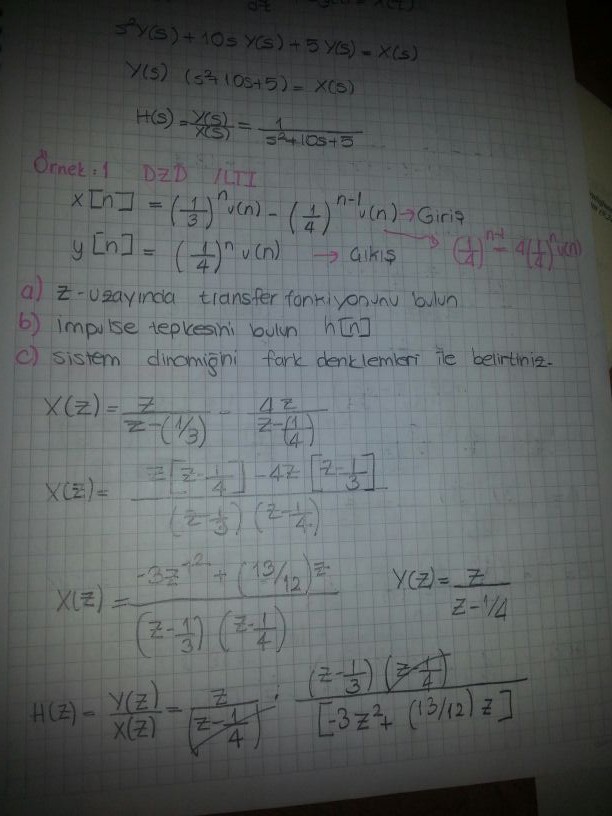 s²Y(s) + 10s Y(s) + 5 Y(s) = X(s)
Y(s) (s²+10s+5) = X(s)
H(s) = Y(s)/X(s) = 1/(s²+10s+5)
Örnek:1 DZD /LTI
x[n] = (1/3)ⁿ u(n) - (1/4)ⁿ⁻¹ u(n) → Giriş
y[n] = (1/4)ⁿ u(n) → Çıkış (1/4)ⁿ⁻¹ = 4(1/4)ⁿ u(n)
a) z-uzayında transfer fonkiyonunu bulun
b) impulse tepkesini bulun h[n]
c) sistem dinamiğini fark denklemleri ile belirtiniz.
X(z) = z/(z-(1/3)) - 4z/(z-(1/4))
X(z) = (z[z-1/4] - 4z[z-1/3])/((z-1/3)(z-1/4))
X(z) = (-3z² + (13/12)z)/((z-1/3)(z-1/4)) Y(z) = z/(z-1/4)
H(z) = Y(z)/X(z) = z/(z-1/4) . (z-1/3)(z-1/4)/[-3z² + (13/12)z]